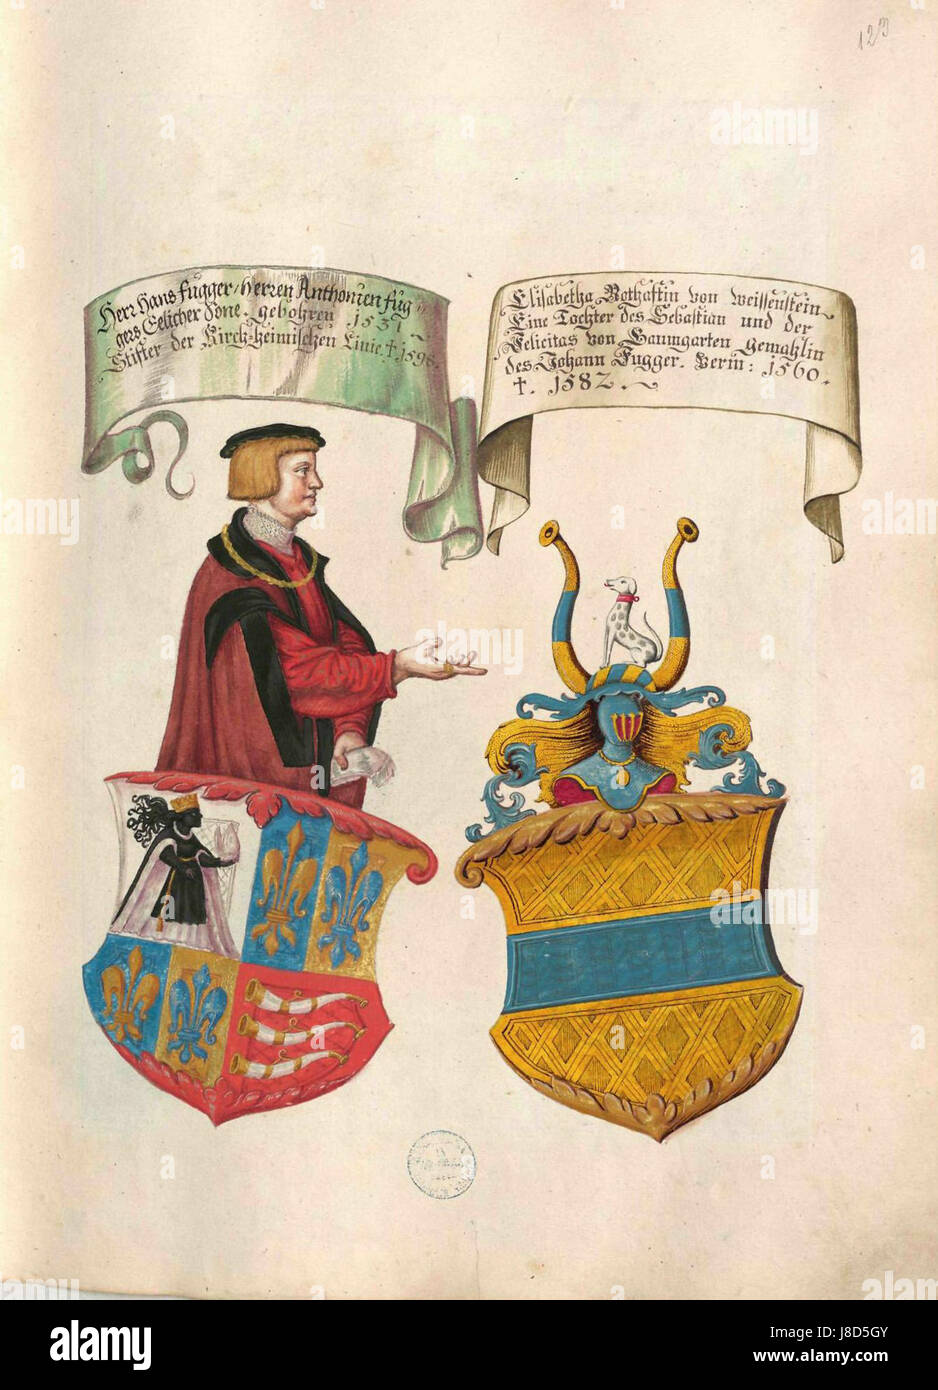 123
Herr Hans Fugger, Herren Anthonien Fug„
gers Eelicher Sone, gebohren 1531
Stifter der Kirch-heimischen Linie. † 1598.
Elisabetha Nothaftin von Weissenstein
Eine Tochter des Sebastian und der
Felicitas von Baumgarten Gemahlin
des Johann Fugger. Verm: 1560.
†. 1582.
alamy
Image ID: J8D5GY
www.alamy.com